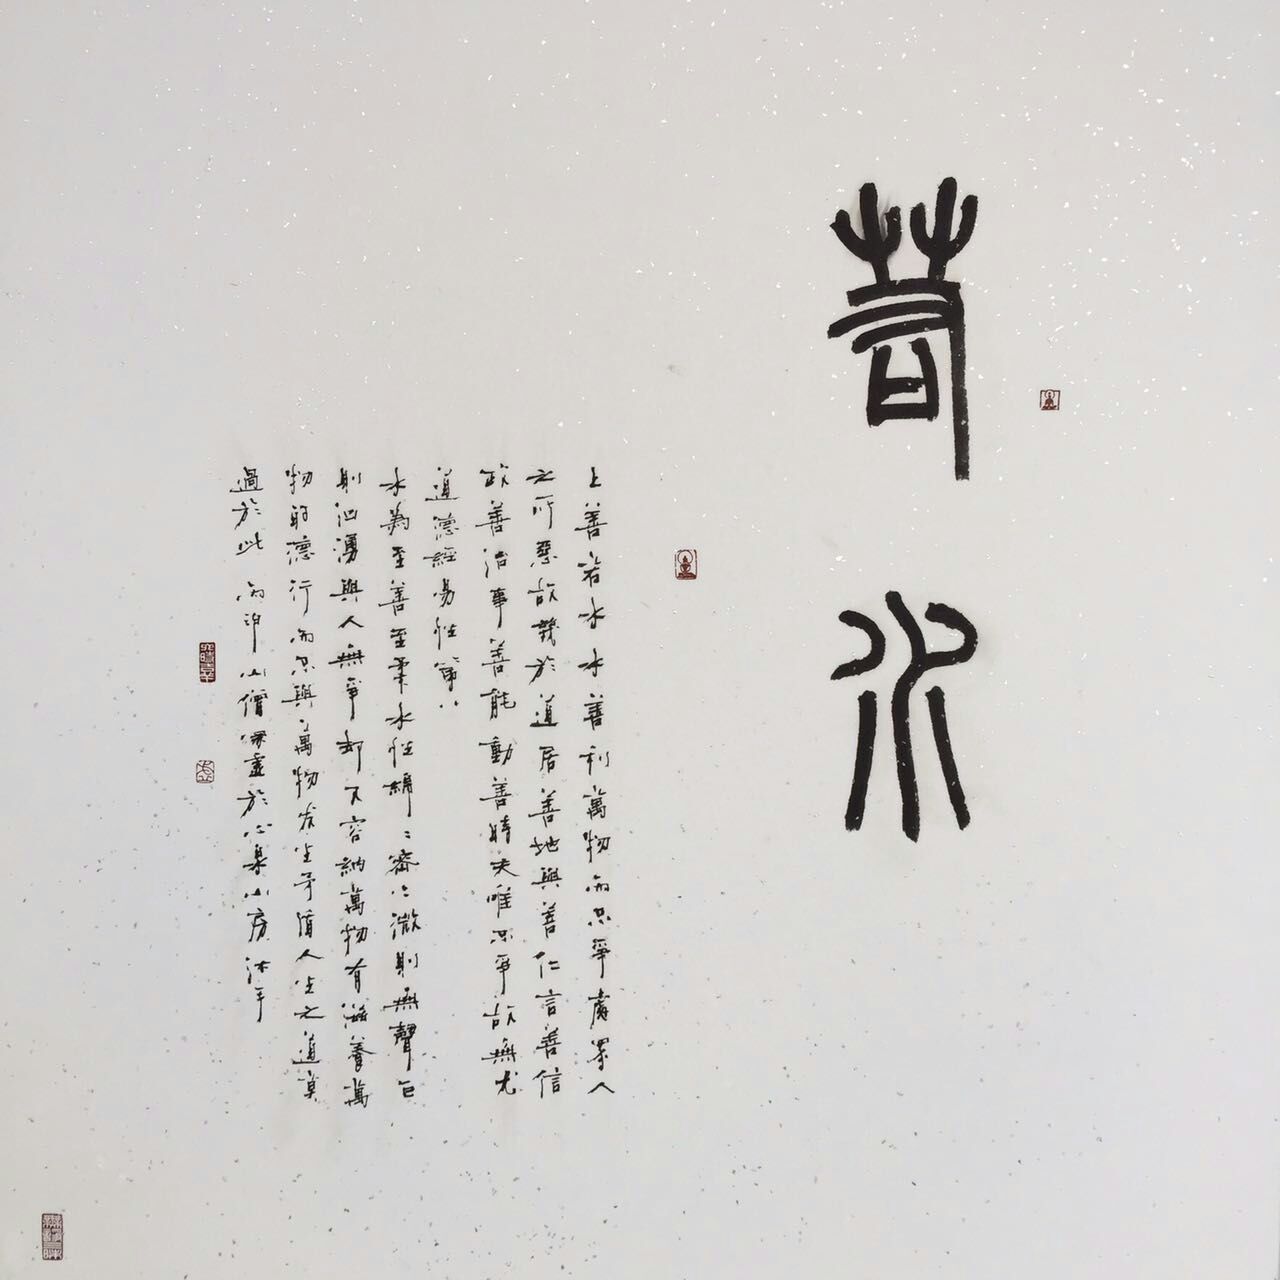 若水
上善若水水善利萬物而不爭處眾人
之所惡故幾於道居善地與善仁言善信
政善治事善能動善時夫唯不爭故無尤
道德經易性第八
水為至善至柔水性綿〻密〻微則無聲巨
則洶湧與人無爭却又容納萬物有滋養萬
物的德行而不與萬物发生矛盾人生之道莫
過於此 山僧 虛於心 小房沐手